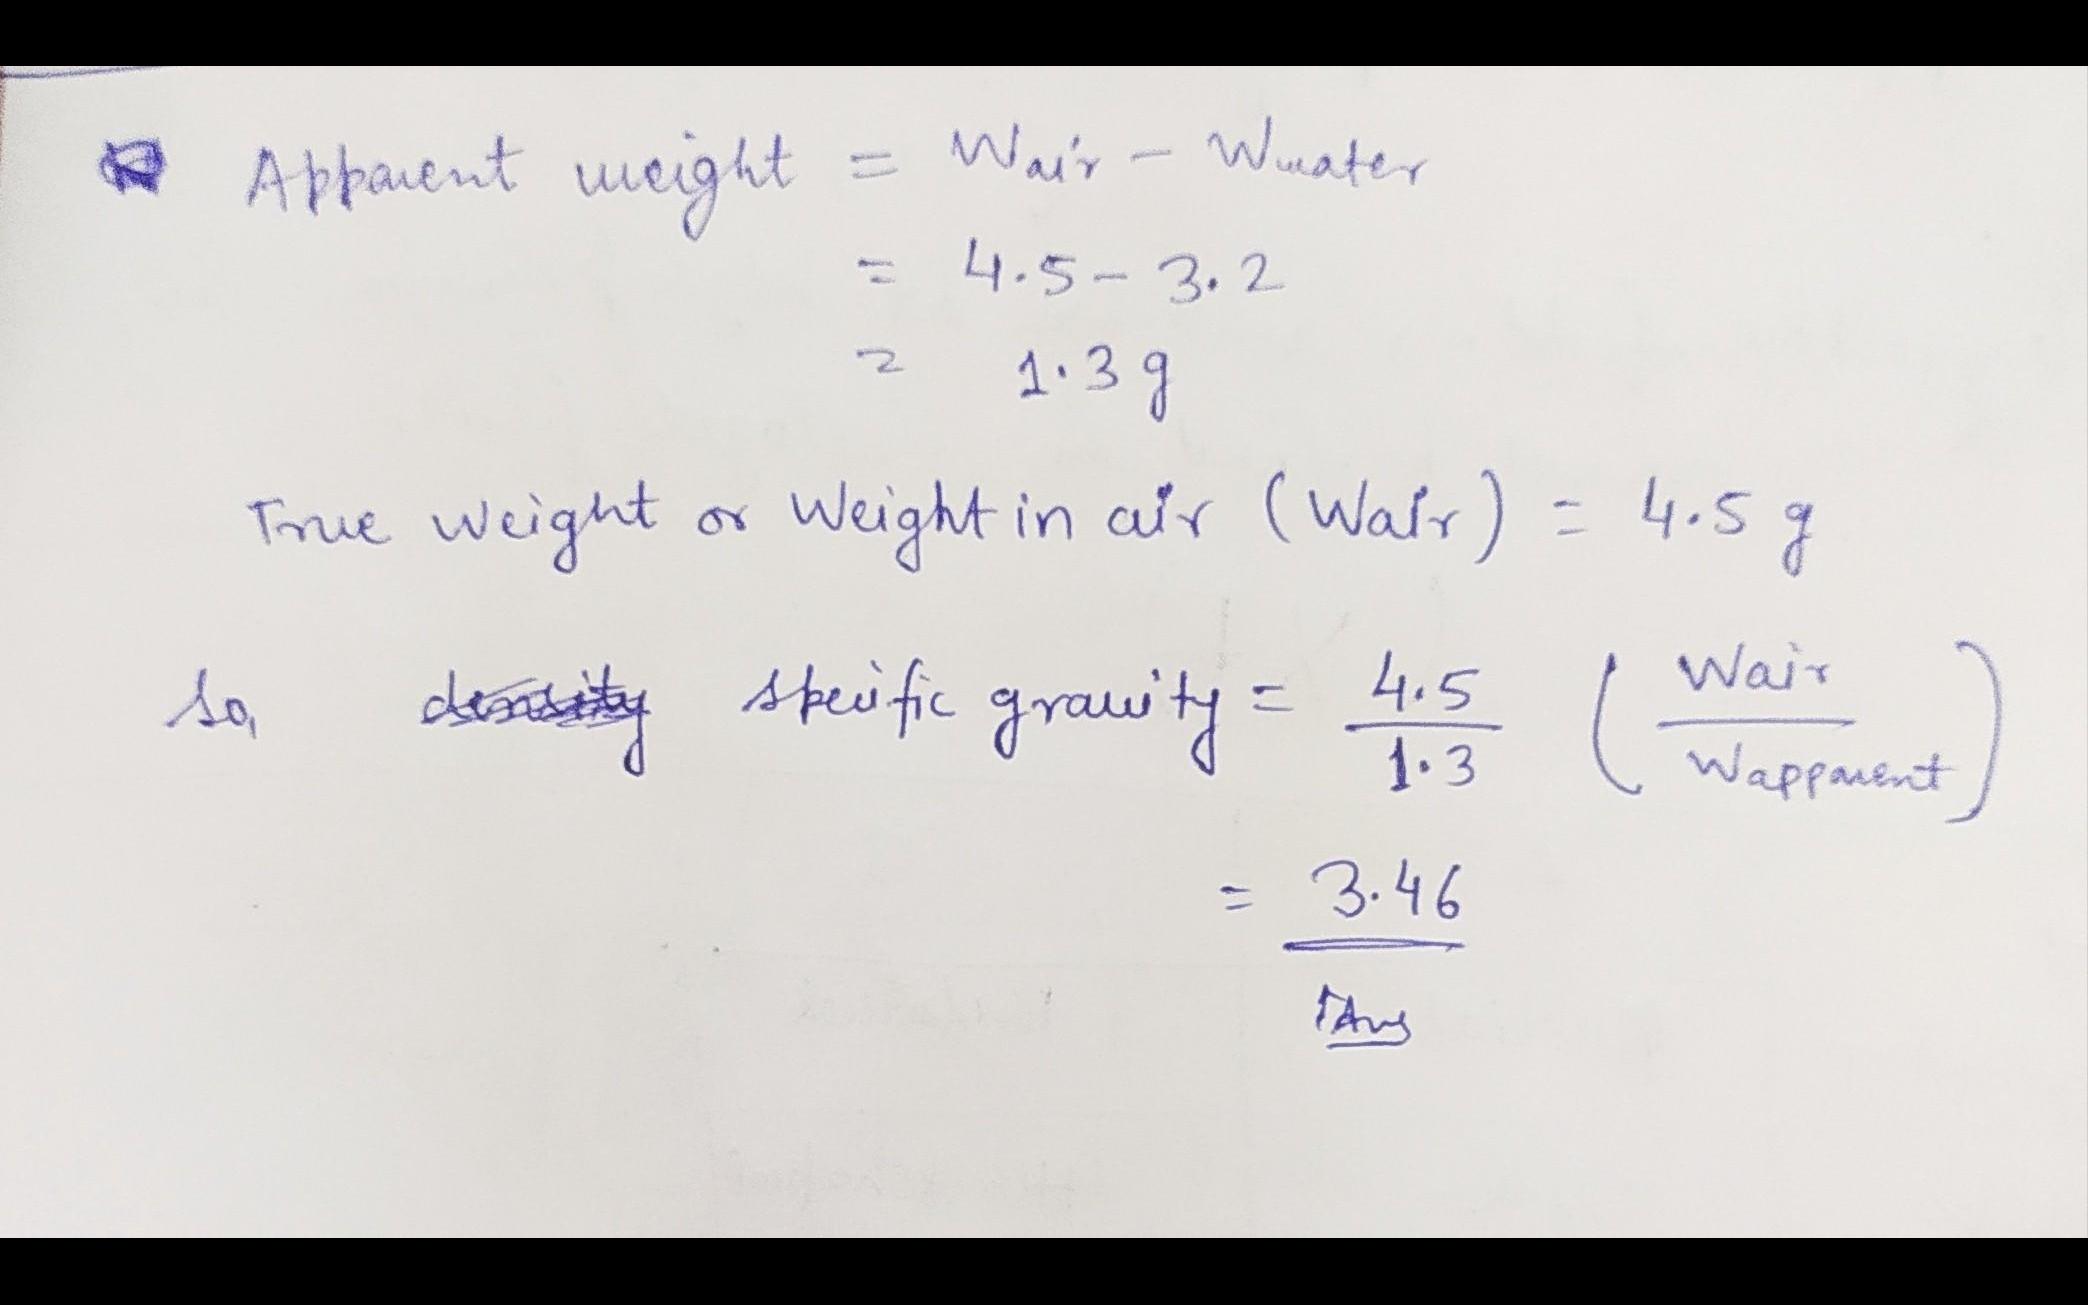 Apparent weight = Wair - Wwater
= 4.5 - 3.2
= 1.3 g
True weight or Weight in air (Wair) = 4.5 g
So, density specific gravity = 4.5 / 1.3 (Wair / Wapparent)
= 3.46
Ans